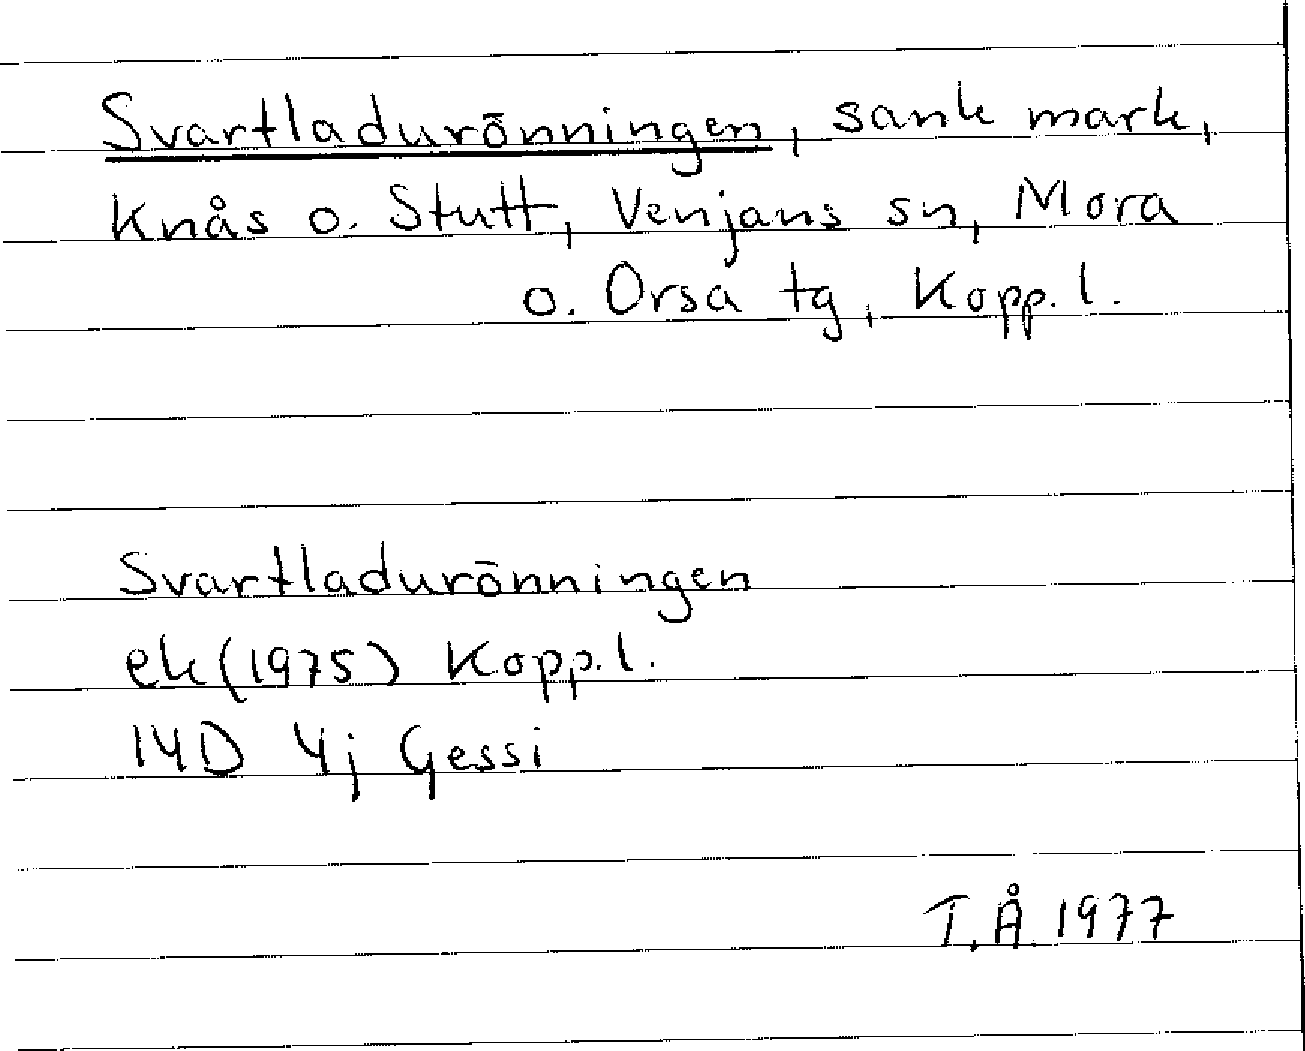 Svartladurönningen, sank mark,
Knås o. Stutt, Venjans sn, Mora
o. Orsa tg, Kopp. l.
Svartladurönningen
ek (1975) Kopp. l.
14D 4j Gessi
T. Å. 1977